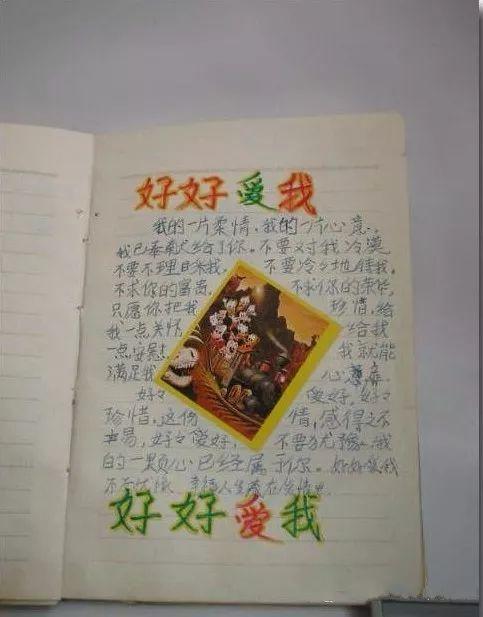 好好爱我
我的一片柔情,我的一片心意,
我已奉献给了你。不要对我冷漠
不要不理日睬我。不要冷々地待我,
不求你的富贵, 不求你的荣华,
只愿你把我 珍惜,给
我一点关怀 给我
一点安慰 我就能
满足我 心意
好々 爱好,好々
珍惜,这份 情,感得之不
易,好々爱好, 不要犹豫,我
的一颗心已经属于你。好好爱我
幸福人生
好好爱我